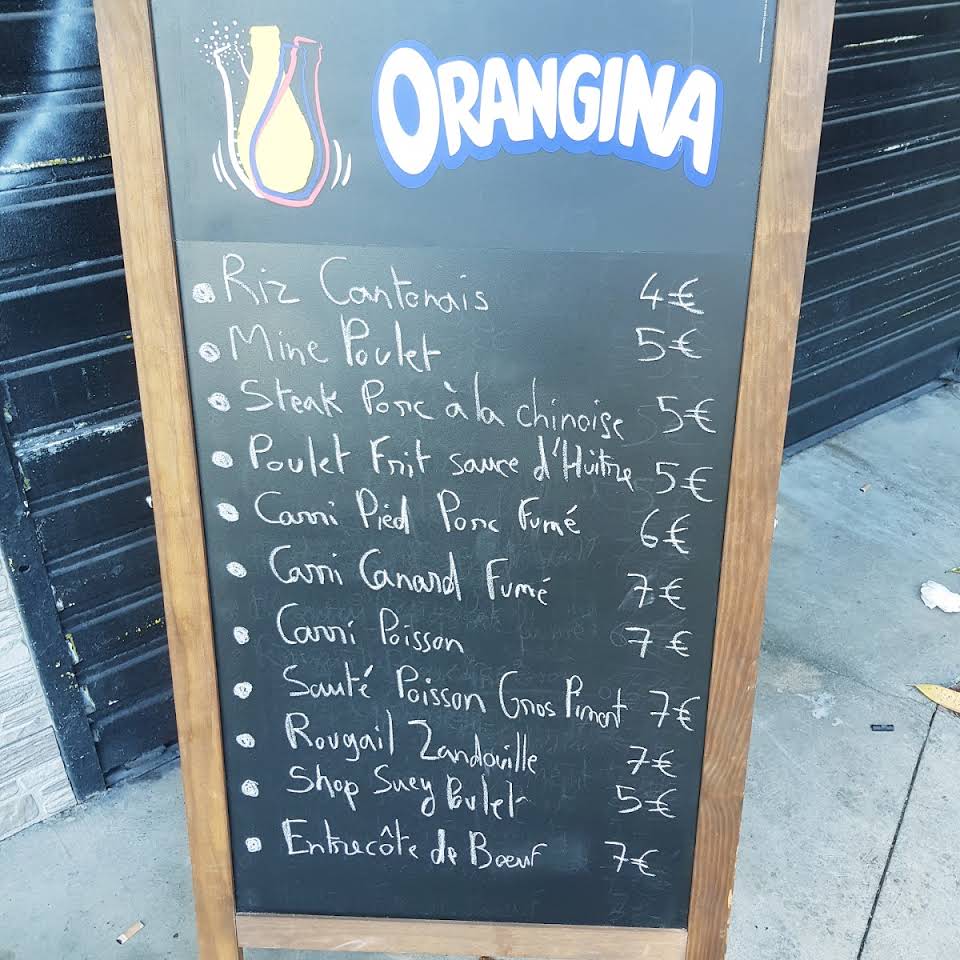 ORANGINA
Riz Cantonais 4€
Mine Poulet 5€
Steak Porc à la chinoise 5€
Poulet Frit sauce d'Hüitre 5€
Carri Pied Porc Fumé 6€
Carri Canard Fumé 7€
Carri Poisson 7€
Sauté Poisson Gros Piment 7€
Rougail Zandouille 7€
Shop Suey Poulet 5€
Entrecôte de Bœuf 7€